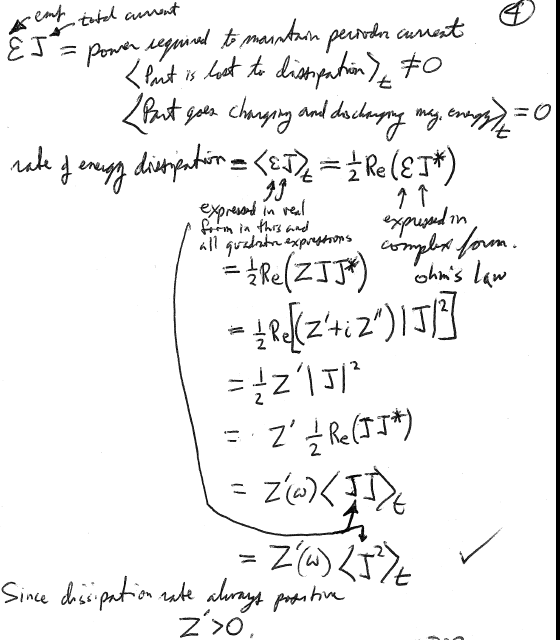 ④
emf total current
ℰJ = power required to maintain periodic current
⟨Part is lost to dissipation⟩_t ≠ 0
⟨Part goes charging and discharging mag. energy⟩_t = 0
rate of energy dissipation = ⟨ℰJ⟩_t = ½ Re(ℰJ*)
expressed in real
form in this and
all quadratic expressions
expressed in
complex form.
ohm's law
= ½ Re(ZJJ*)
= ½ Re[(Z' + iZ'')|J|²]
= ½ Z'|J|²
= Z' ½ Re(JJ*)
= Z'(ω)⟨JJ⟩_t
= Z'(ω)⟨J²⟩_t ✓
Since dissipation rate always positive
Z' > 0.